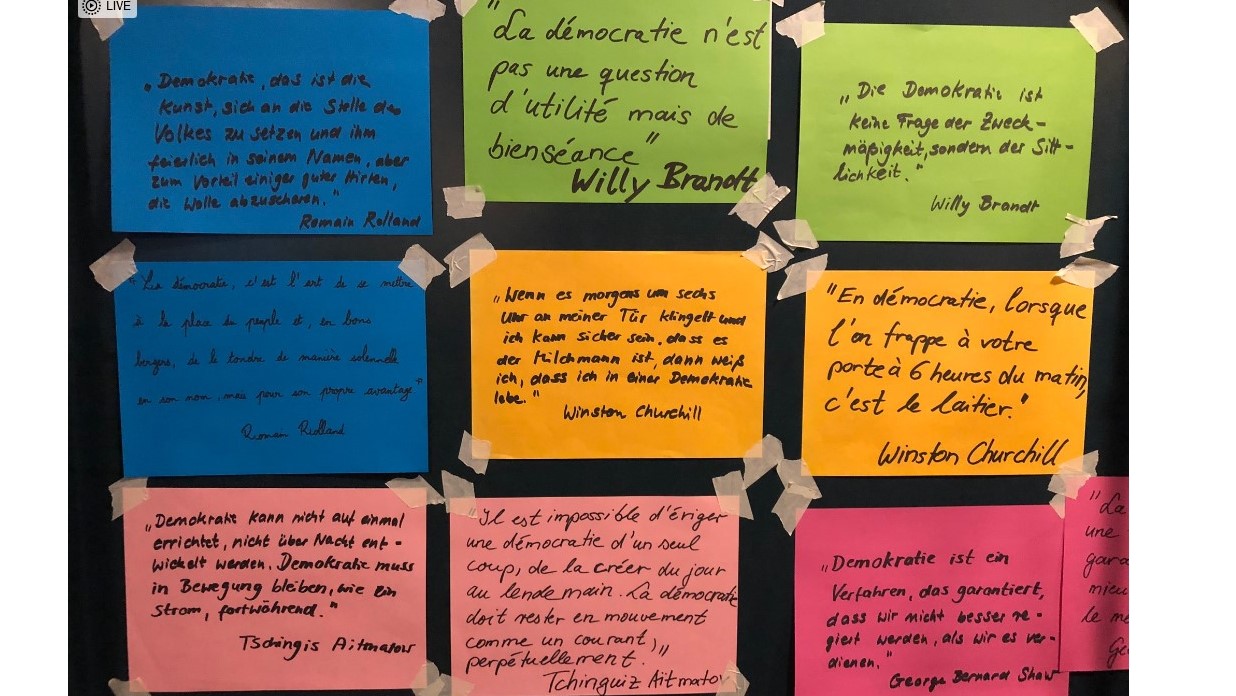 LIVE
„Demokratie, das ist die
Kunst, sich an die Stelle des
Volkes zu setzen und ihm
feierlich in seinem Namen, aber
zum Vorteil einiger guter Hirten,
die Wolle abzuscheren."
Romain Rolland
"La démocratie n'est
pas une question
d'utilité mais de
bienséance"
Willy Brandt
„Die Demokratie ist
keine Frage der Zweck-
mäßigkeit, sondern der Sitt-
lichkeit."
Willy Brandt
"La démocratie, c'est l'art de se mettre
à la place du peuple et, en bons
bergers, de le tondre de manière solennelle
en son nom, mais pour son propre avantage"
Romain Rolland
„Wenn es morgens um sechs
Uhr an meiner Tür klingelt und
ich kann sicher sein, dass es
der Milchmann ist, dann weiß
ich, dass ich in einer Demokratie
lebe."
Winston Churchill
"En démocratie, lorsque
l'on frappe à votre
porte à 6 heures du matin,
c'est le laitier."
Winston Churchill
„Demokratie kann nicht auf einmal
errichtet, nicht über Nacht ent-
wickelt werden. Demokratie muss
in Bewegung bleiben, wie ein
Strom, fortwährend."
Tschingis Aitmatow
"Il est impossible d'ériger
une démocratie d'un seul
coup, de la créer du jour
au lendemain. La démocratie
doit rester en mouvement
comme un courant,
perpétuellement."
Tchinguiz Aïtmatov
„Demokratie ist ein
Verfahren, das garantiert,
dass wir nicht besser re-
giert werden, als wir es ver-
dienen."
George Bernard Shaw
"La
une
gara
mieu
le mé
Ge